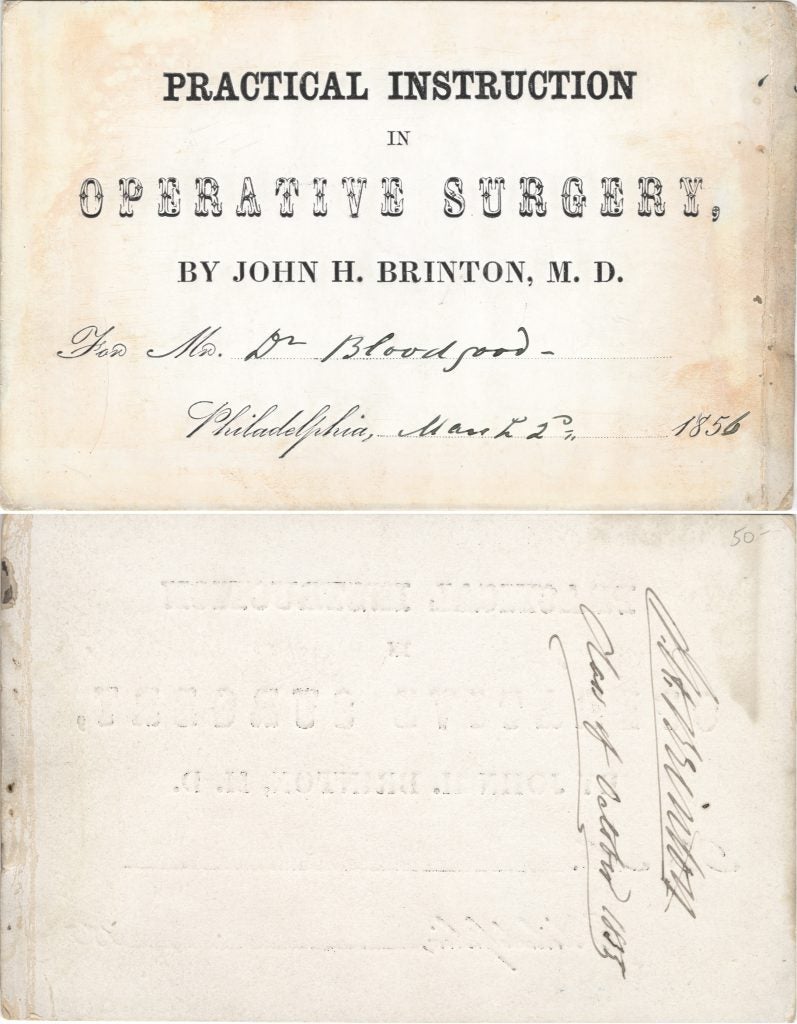 PRACTICAL INSTRUCTION
IN
OPERATIVE SURGERY,
BY JOHN H. BRINTON, M. D.
For Mr. Dr Bloodgood -
Philadelphia, March 2d, 1856
50-
Brinton
Class of October 1855